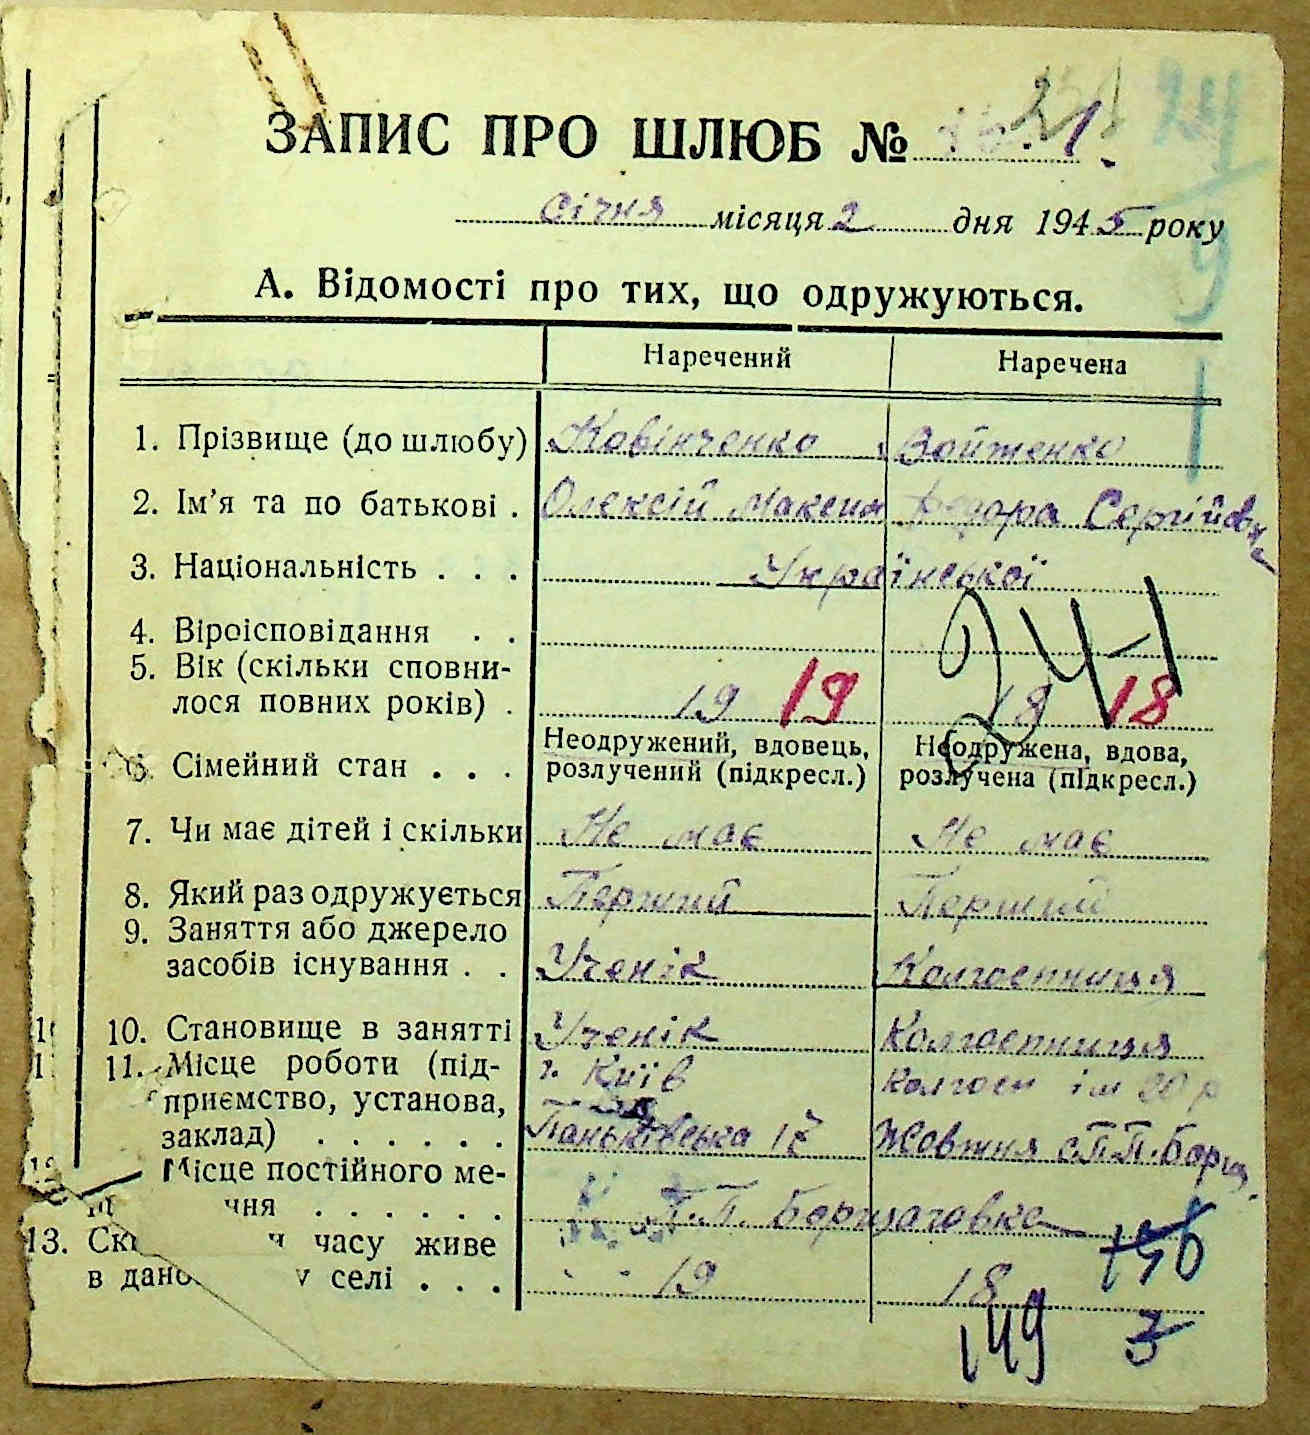 ЗАПИС ПРО ШЛЮБ № 1.
24
січня місяця 2 дня 1945 року
9
А. Відомості про тих, що одружуються.
Наречений Наречена
1
1. Прізвище (до шлюбу) Ковінченко Войтенко
2. Ім'я та по батькові . Олексій Максим Федора Сергійовна
3. Національність . . . Української
4. Віроісповідання . .
5. Вік (скільки сповни-
лося повних років) . 19 19 18 18
241
6. Сімейний стан . . . Неодружений, вдовець, Неодружена, вдова,
розлучений (підкресл.) розлучена (підкресл.)
7. Чи має дітей і скільки Не має Не має
8. Який раз одружується Перший Перший
9. Заняття або джерело
засобів існування . . Ученік Колгоспниця
10. Становище в занятті Ученік Колгоспниця
11. Місце роботи (під- г. Київ Колгосп ім 20 р
приємство, установа,
заклад) . . . . . . Паньківська 17 Жовтня с.П.П.-Борщ.
Місце постійного ме-
ння . . . . . . П.П. Борщаговка
13. Ск часу живе 156
в дано у селі . . . 19 18
149 3